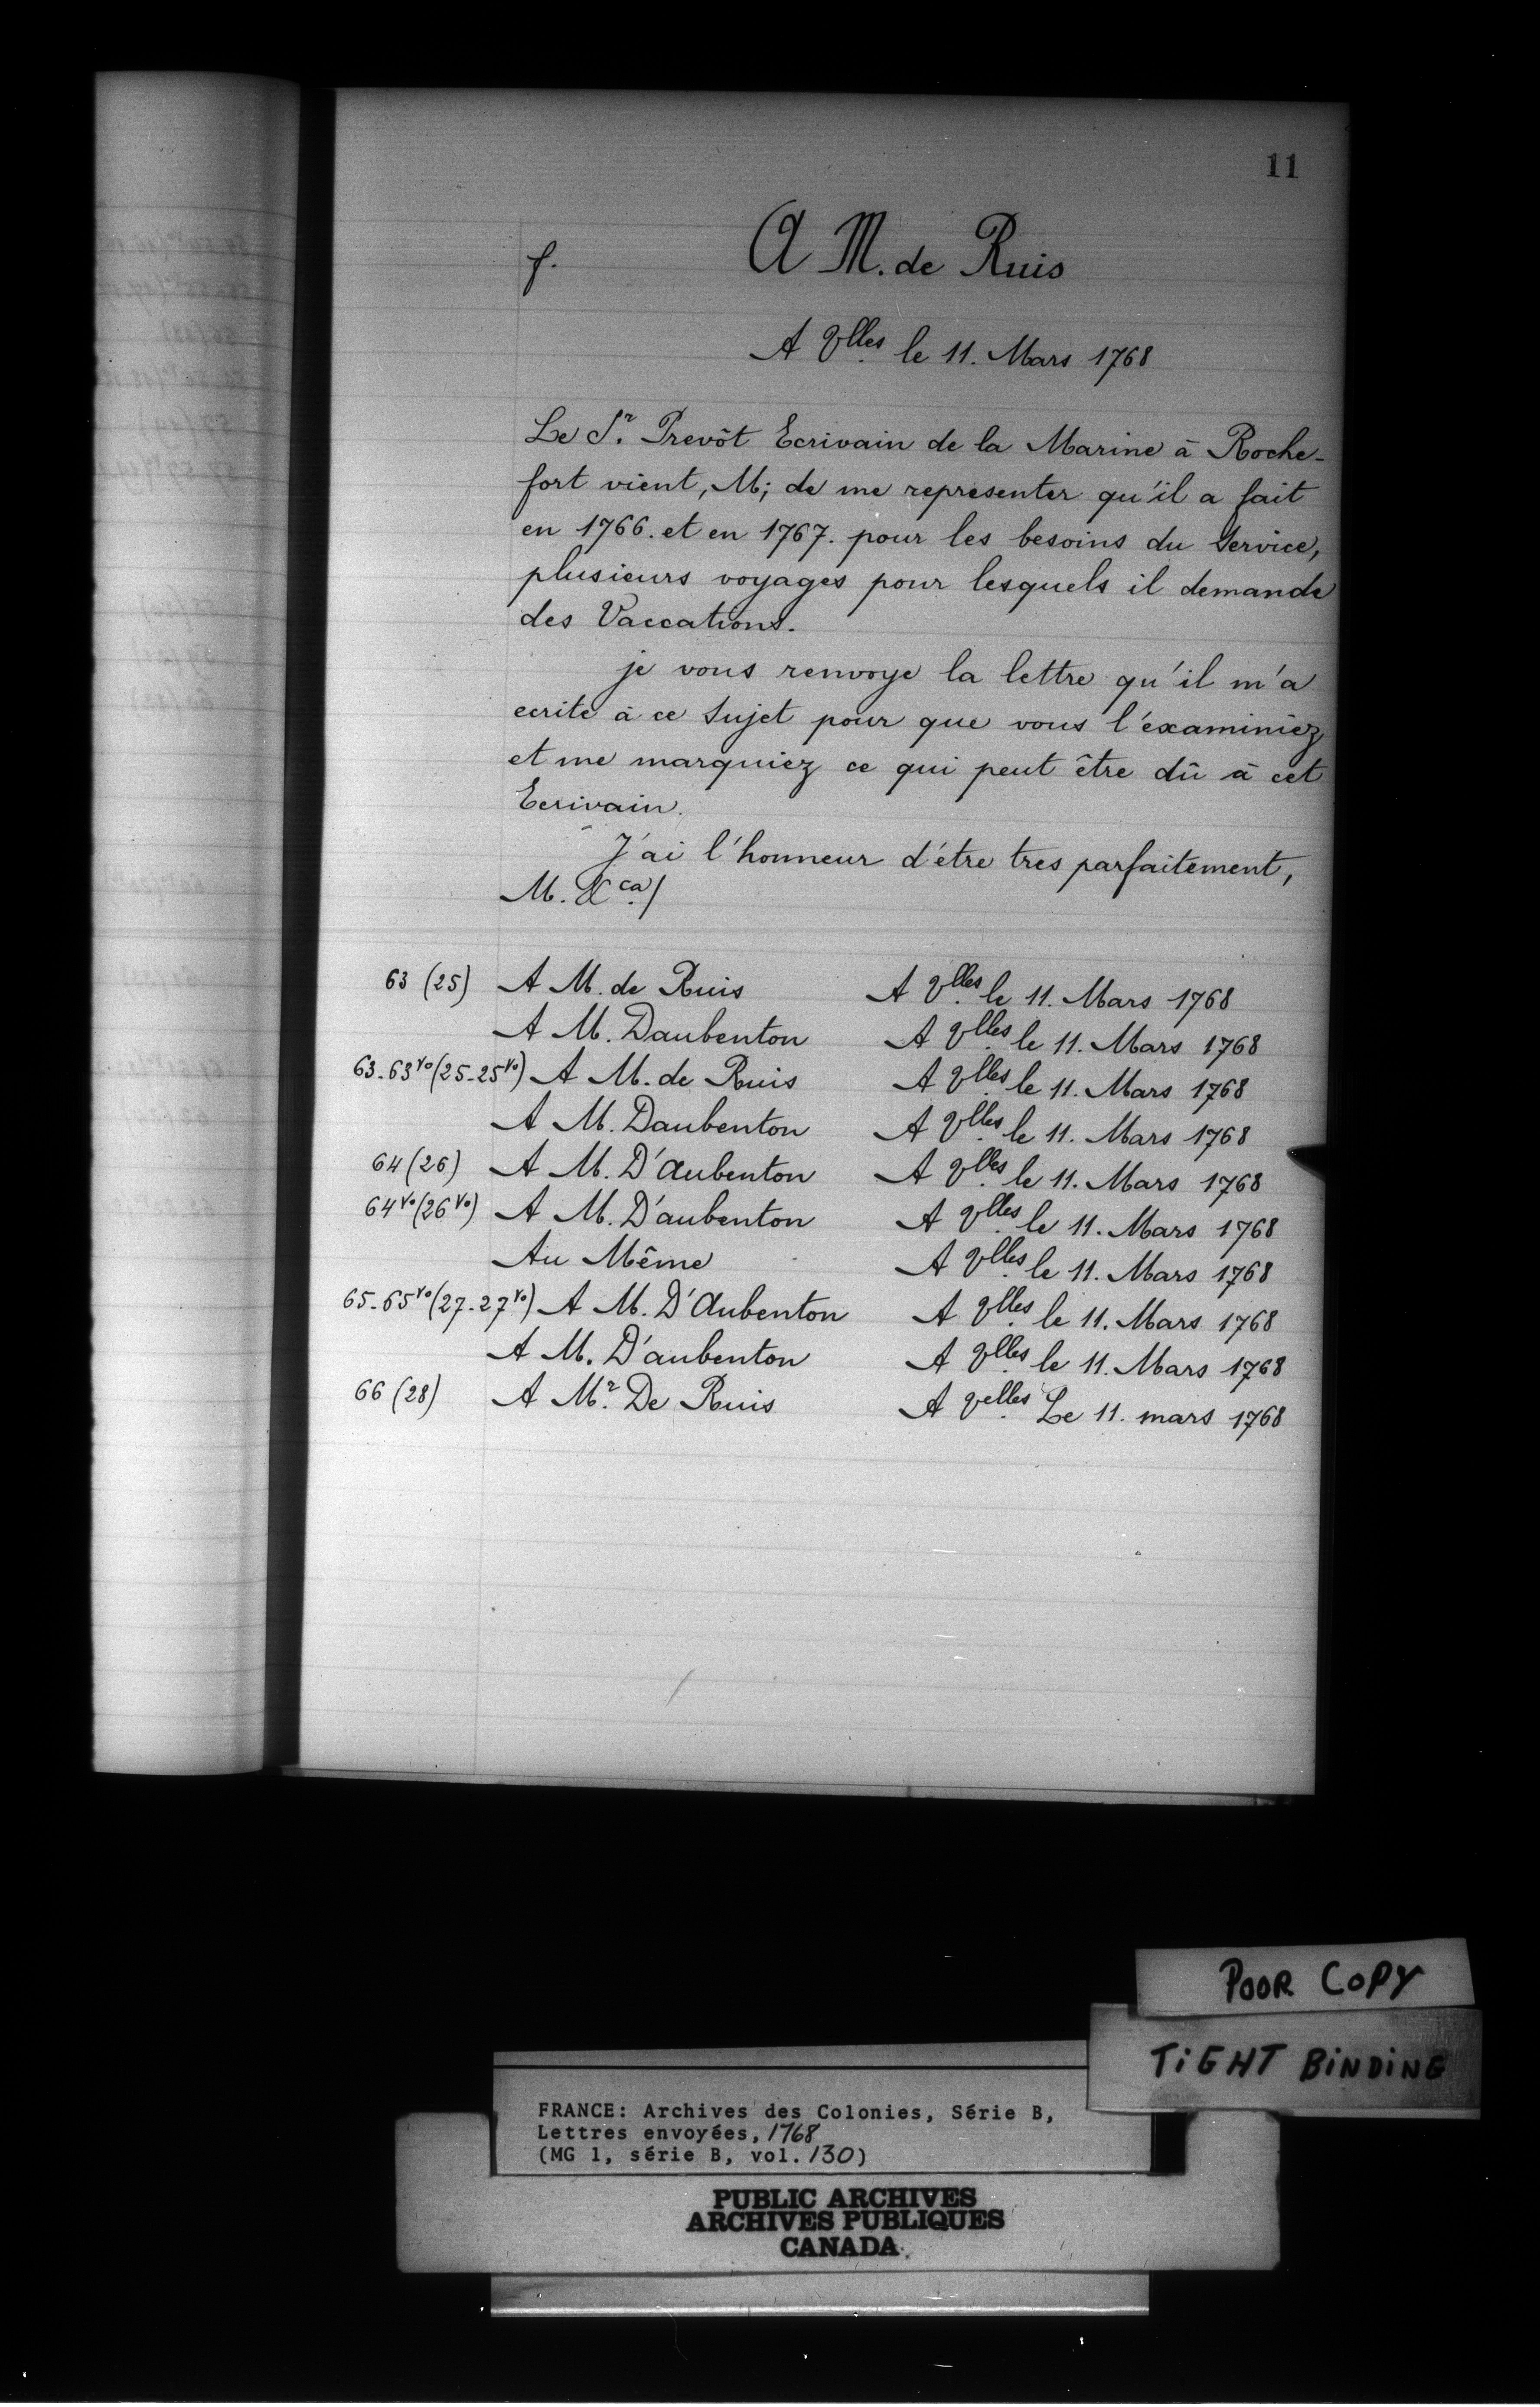 11
f.
A M. de Ruis
A Vlles le 11. Mars 1768
Le Sr. Prevôt Ecrivain de la Marine à Roche-
fort vient, M; de me representer qu'il a fait
en 1766. et en 1767. pour les besoins du Service,
plusieurs voyages pour lesquels il demande
des Vaccations.
je vous renvoye la lettre qu'il m'a
ecrite à ce Sujet pour que vous l'éxaminiez
et me marquiez ce qui peut être dû à cet
Ecrivain.
J'ai l'honneur d'étre tres parfaitement,
M. &ca /
63 (25) A M. de Ruis A Vlles le 11. Mars 1768
A M. Daubenton A Vlles le 11. Mars 1768
63-63vo (25-25vo) A M. de Ruis A Vlles le 11. Mars 1768
A M. Daubenton A Vlles le 11. Mars 1768
64 (26) A M. D'Aubenton A Vlles le 11. Mars 1768
64vo (26vo) A M. D'aubenton A Vlles le 11. Mars 1768
Au Même A Vlles le 11. Mars 1768
65-65vo (27-27vo) A M. D'Aubenton A Vlles le 11. Mars 1768
A M. D'aubenton A Vlles le 11. Mars 1768
66 (28) A Mr. De Ruis A Velles Le 11. mars 1768
POOR COPY
TIGHT BINDING
FRANCE: Archives des Colonies, Série B,
Lettres envoyées, 1768
(MG 1, série B, vol. 130)
PUBLIC ARCHIVES
ARCHIVES PUBLIQUES
CANADA